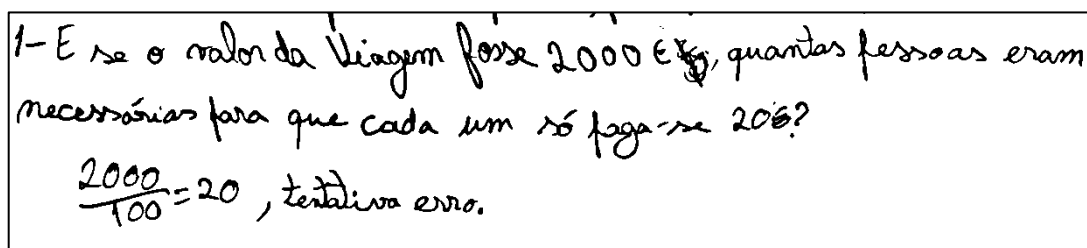 1- E se o valor da Viagem fosse 2000 €, quantas pessoas eram
necessárias para que cada um só paga-se 20€?
2000/100 = 20, tentativa erro.